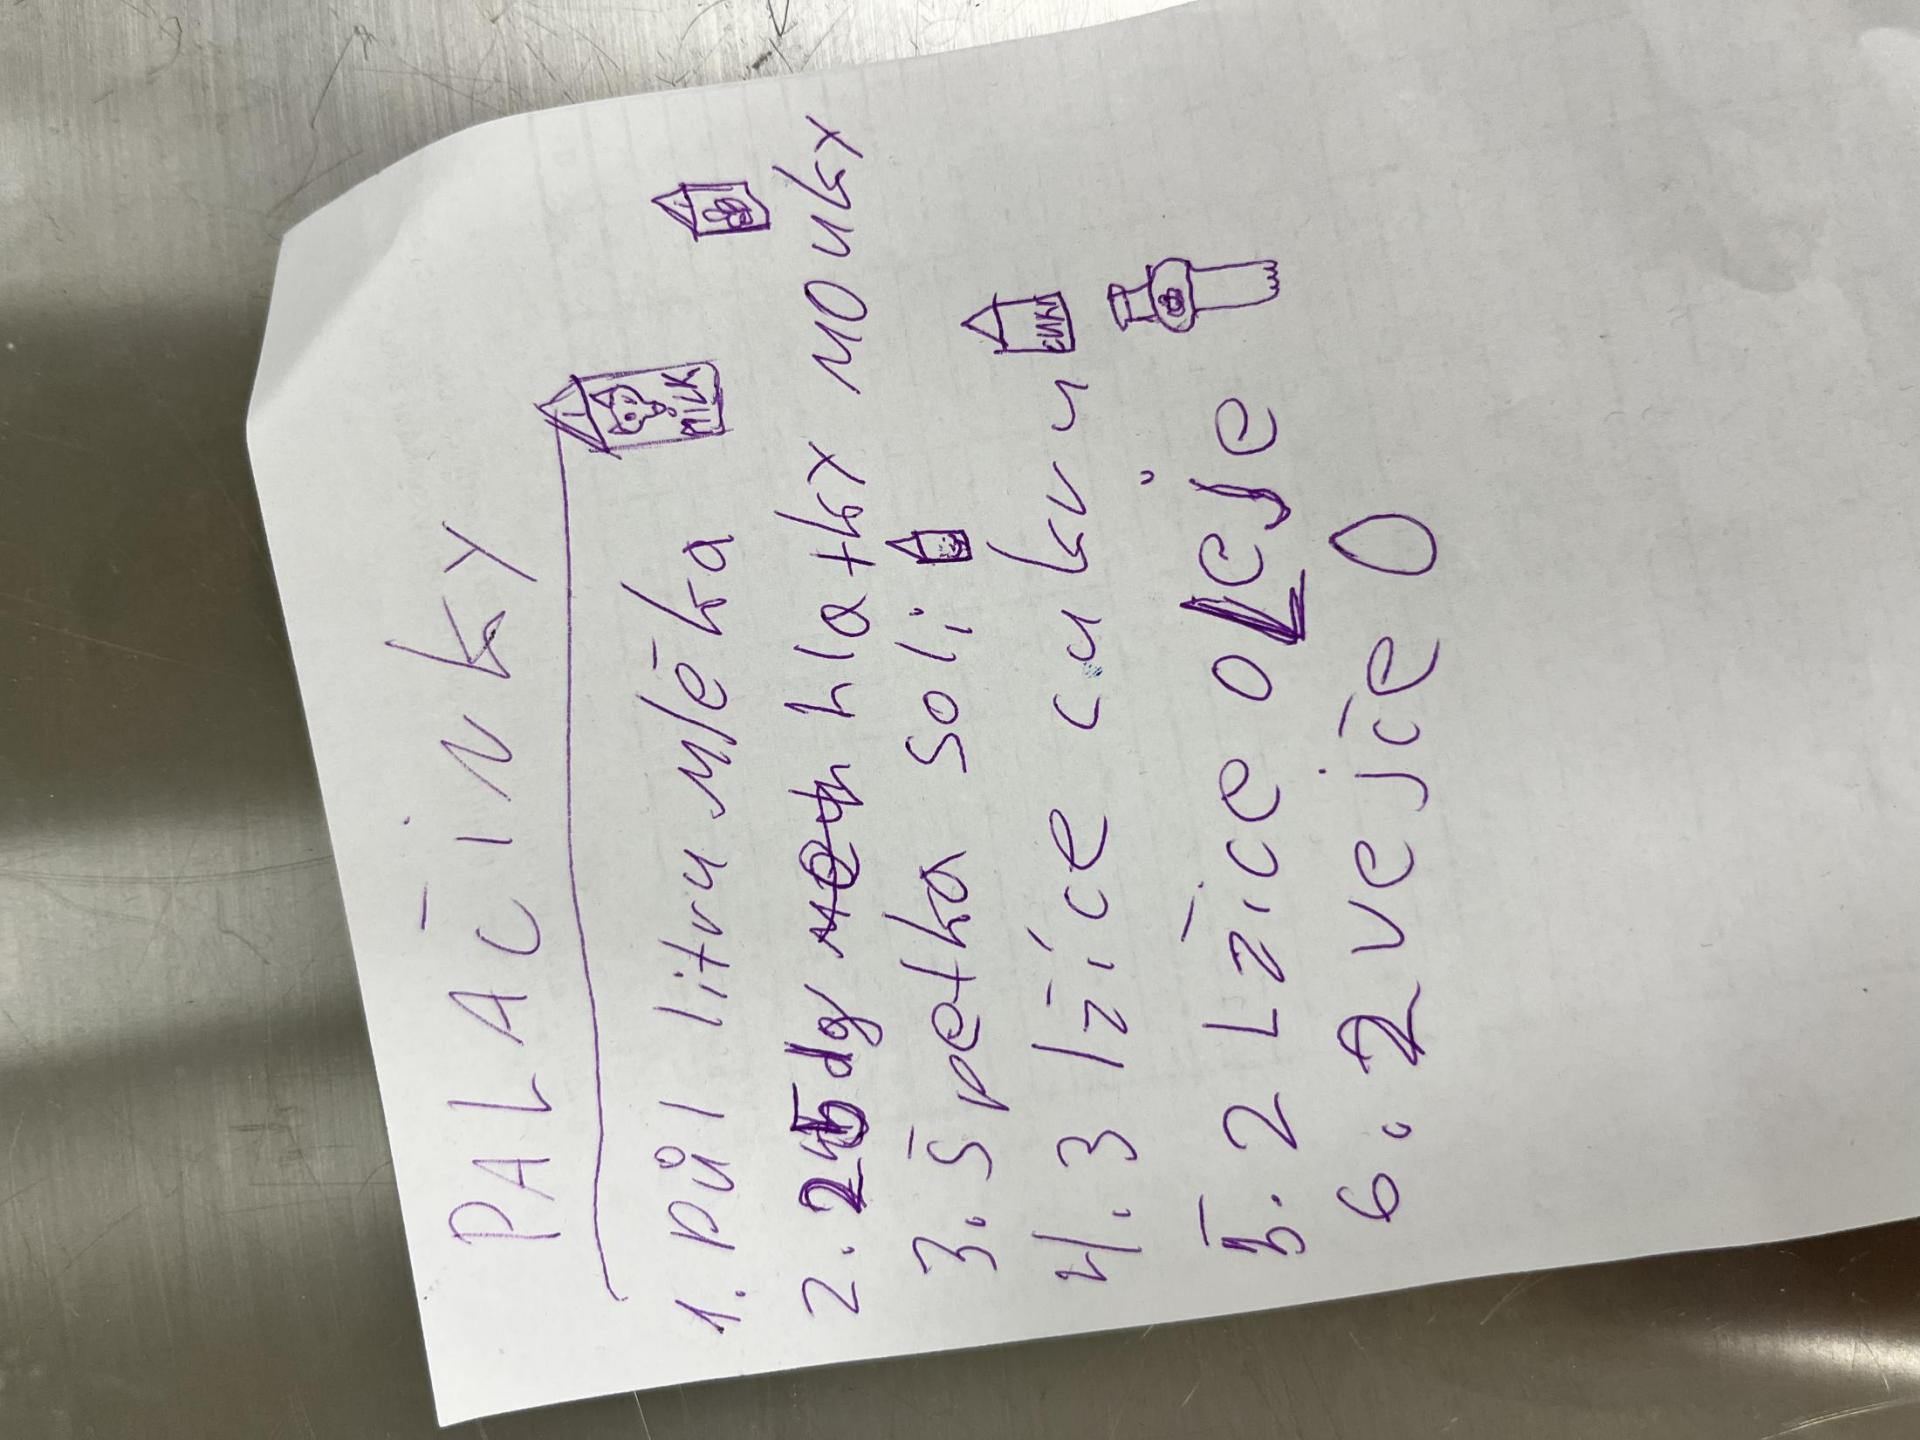 PALAČINKY
1. půl litru mléka
MILK
2. 25 dg hlatky mouky
3. špetka soli
4. 3 lžíce cukru
CUKR
5. 2 Lžíce oLeje
6. 2 vejce